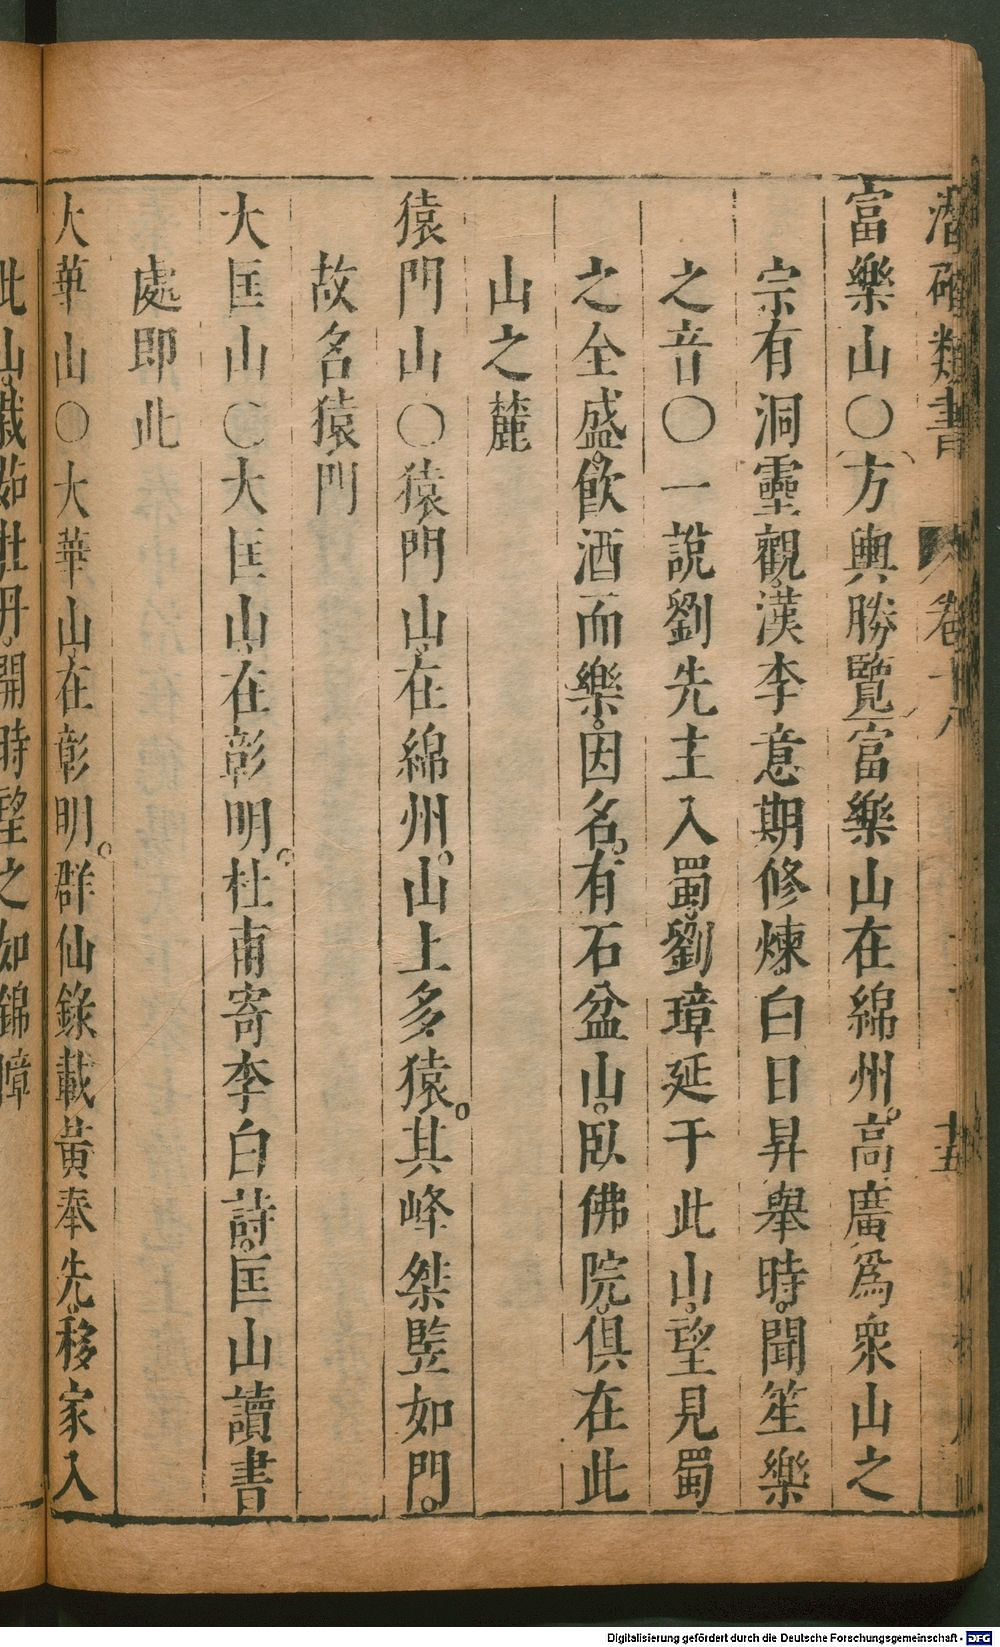 潛確類書 卷十八 十五
富樂山〇方輿勝覽富樂山在綿州。高廣爲衆山之
宗有洞靈觀。漢李意期修煉。白日昇舉時。聞笙樂
之音〇一說劉先主入蜀。劉璋延于此山。望見蜀
之全盛。飲酒而樂。因名。有石盆山。臥佛院。俱在此
山之麓
猿門山〇猿門山。在綿州。山上多猿。其峰桀竪如門。
故名猿門
大匡山〇大匡山。在彰明。杜甫寄李白詩。匡山讀書
處即此
大華山〇大華山。在彰明。群仙錄載黃奉先。移家入
此山。栽茹牡丹。開時望之如錦幛
Digitalisierung gefördert durch die Deutsche Forschungsgemeinschaft - DFG